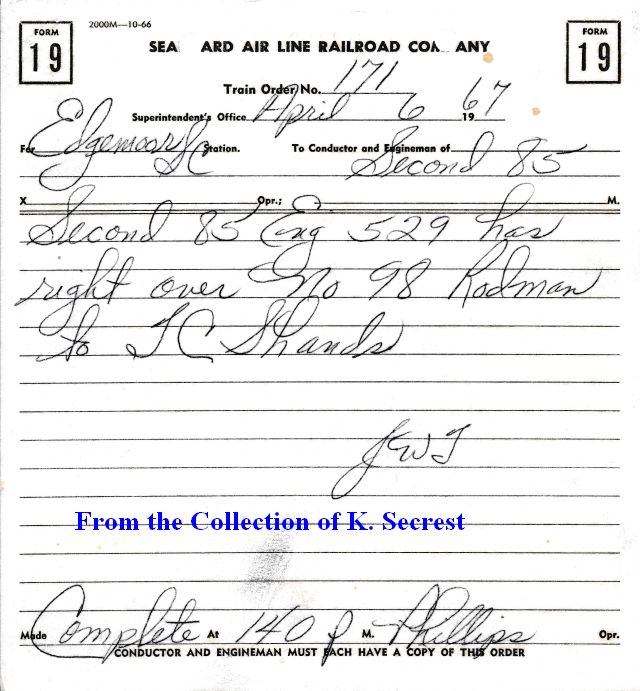 FORM 19
2000M—10-66
FORM 19
SEA ARD AIR LINE RAILROAD COM ANY
Train Order No. 171
Superintendent's Office April 6 1967
For Edgemoor SC Station. To Conductor and Engineman of Second 85
X Opr.; M.
Second 85 Eng 529 has
right over No 98 Rodman
to TC Shands
JWT
From the Collection of K. Secrest
Made Complete At 140 P M. Phillips Opr.
CONDUCTOR AND ENGINEMAN MUST EACH HAVE A COPY OF THIS ORDER